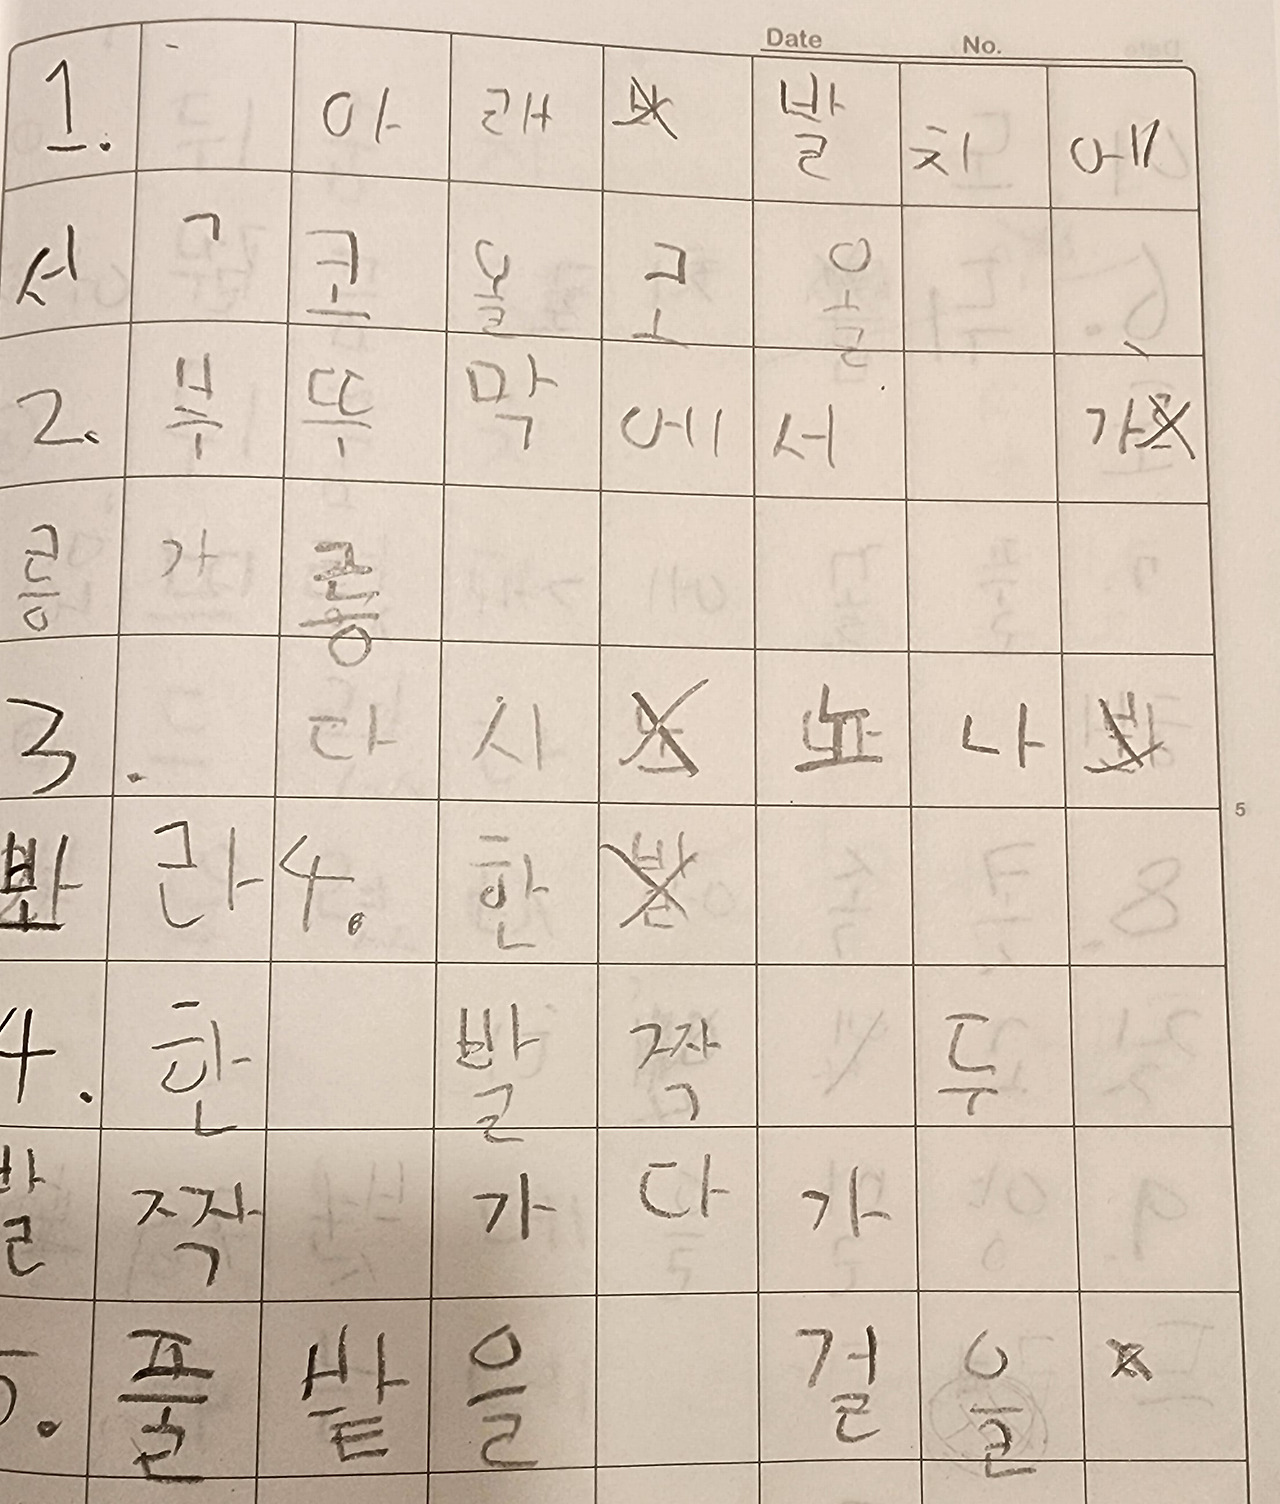 Date No.
1. 아래 발치에
서 ㄱ 코올 고 올
2. 부뚜막에서 가
릉 가릉
3. 다시 뇨 나
봐라 4. 한
4. 한 발짝 두
발짝 가다가
5. 풀밭을 걸은
5